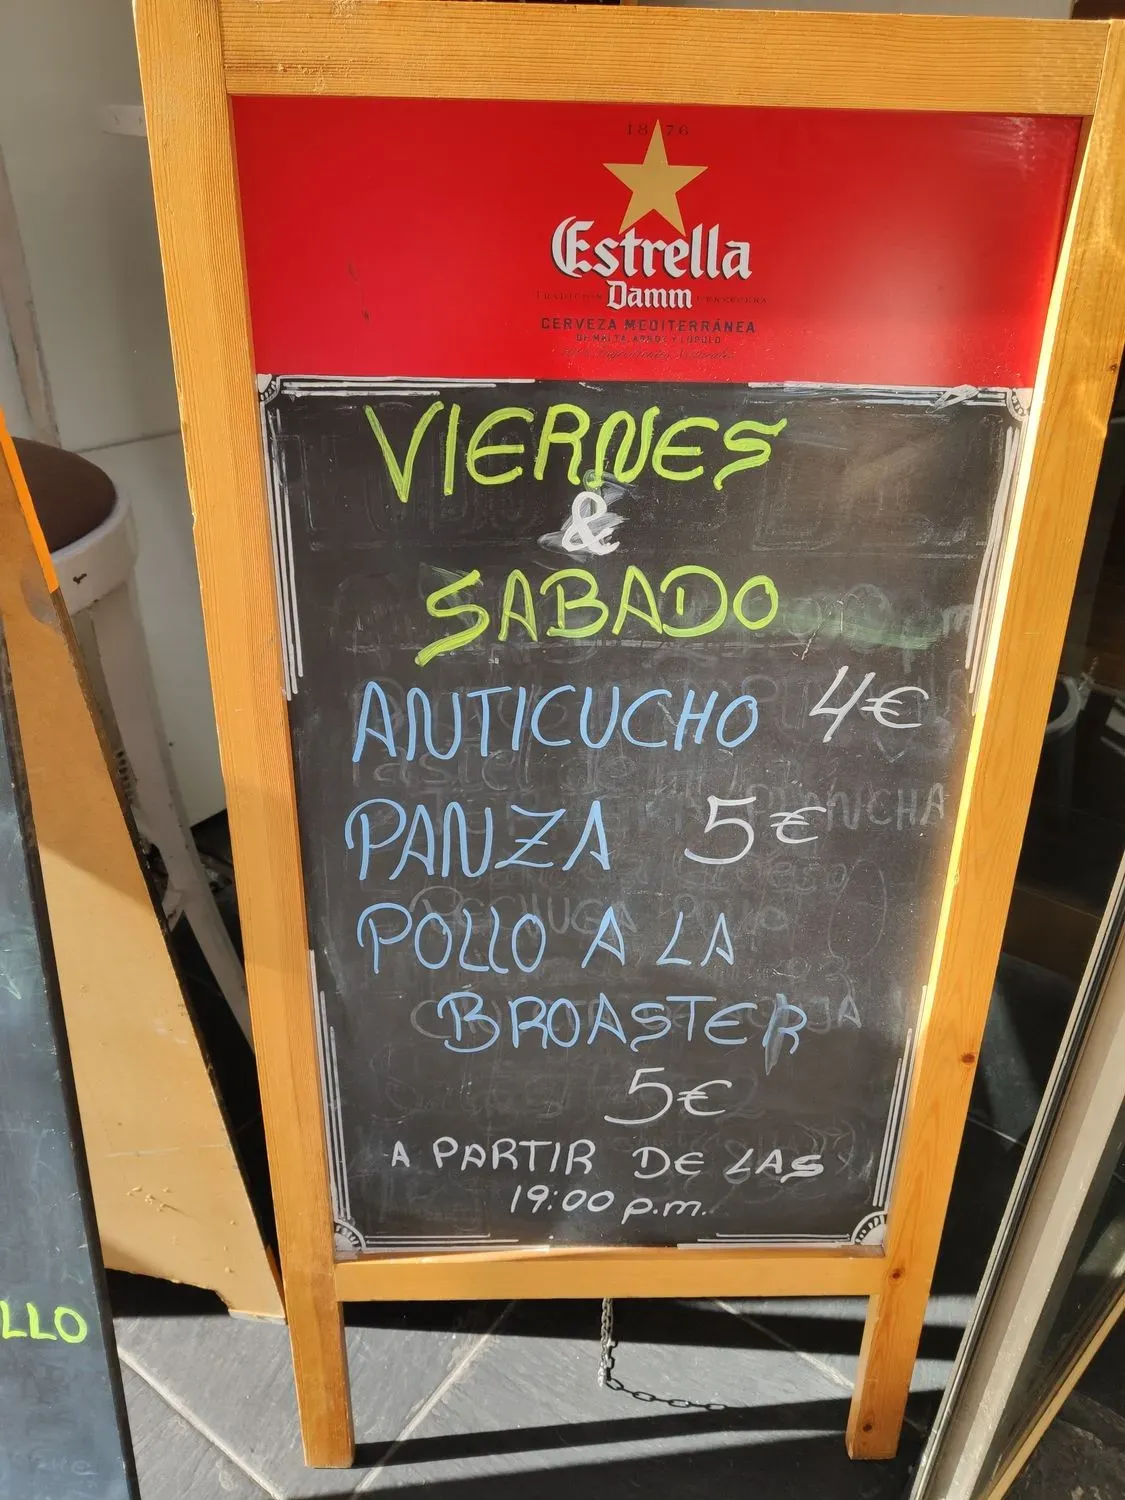 1876
Estrella
Damm
CERVEZA MEDITERRÁNEA
DE MALTA, ARROZ Y LÚPULO
VIERNES
&
SABADO
ANTICUCHO 4€
PANZA 5€
POLLO A LA
BROASTER
5€
A PARTIR DE LAS
19:00 p.m.
LLO